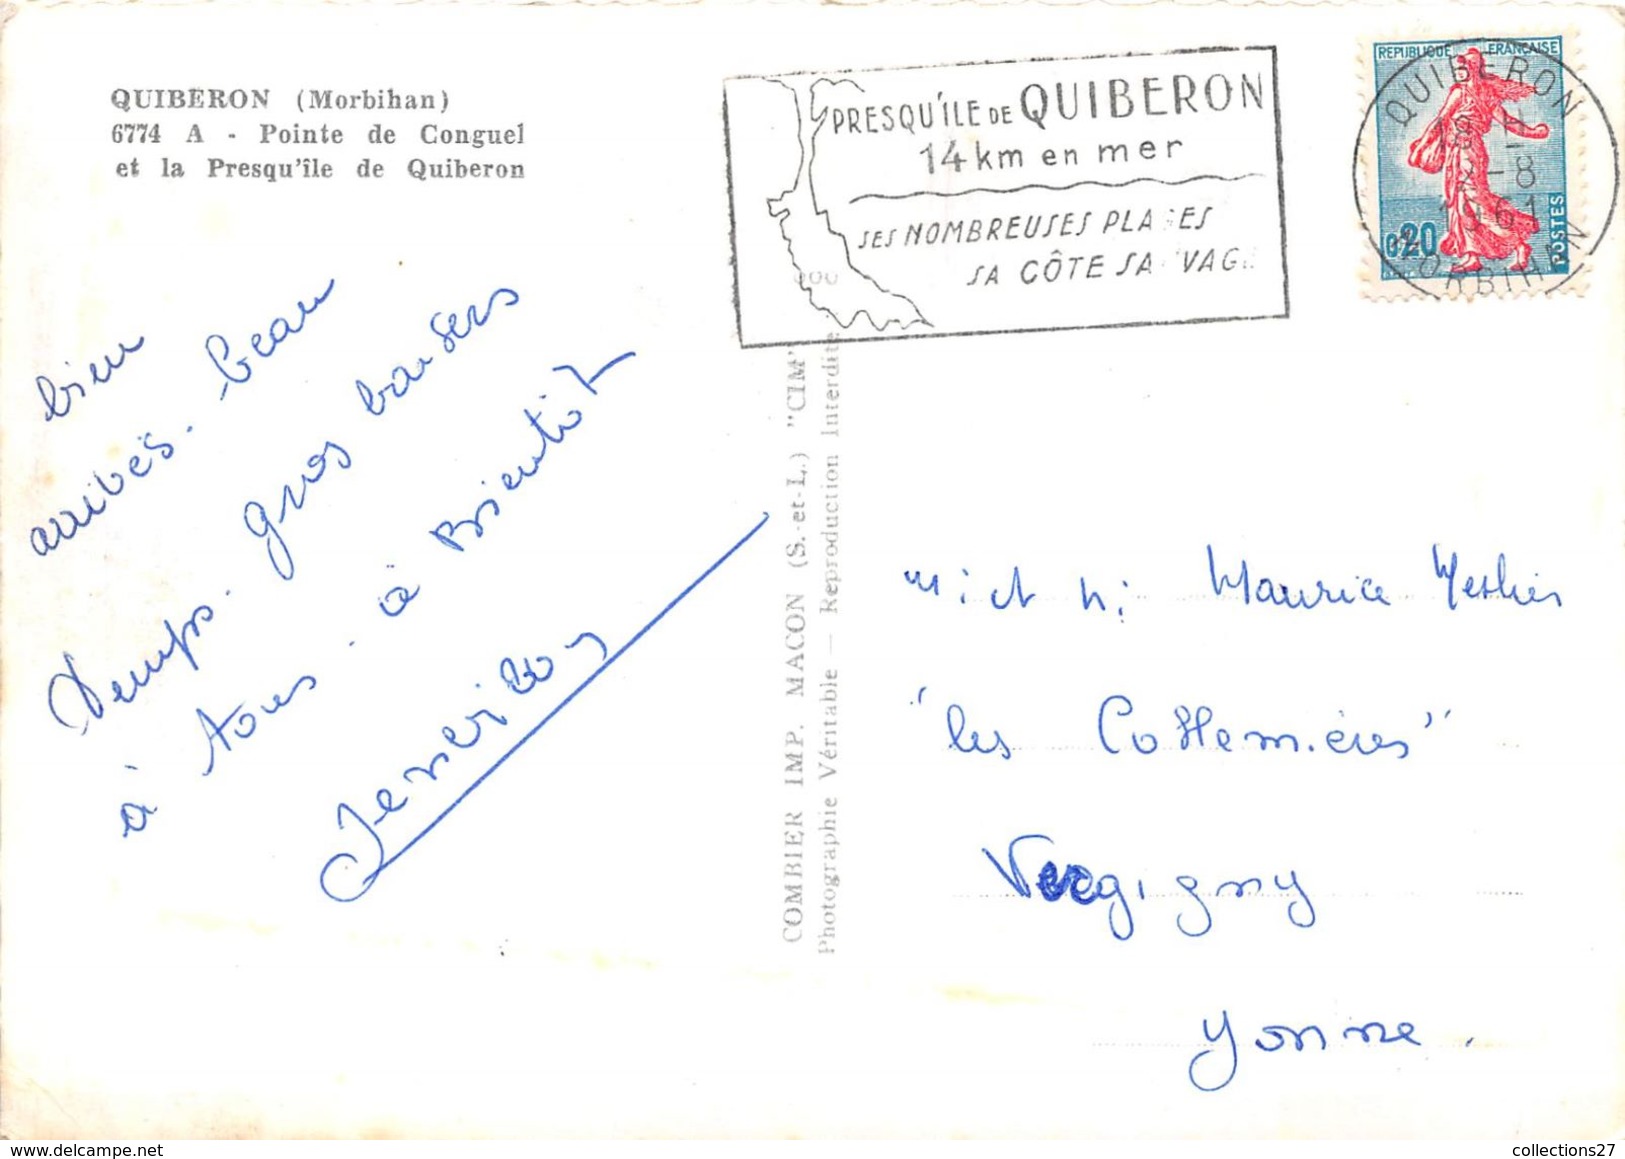 QUIBERON (Morbihan)
6774 A - Pointe de Conguel
et la Presqu'île de Quiberon
PRESQU'ILE DE QUIBERON
14 km en mer
SES NOMBREUSES PLA ES
SA CÔTE SA VAG
REPUBLIQUE FRANÇAISE
0,20
POSTES
QUIBERON
18 H
-8
1961
MORBIHAN
bien
arrivés. beau
temps. gros baisers
à tous. à Bientôt
COMBIER IMP. MACON (S.-et-L.) "CIM"
Photographie Véritable — Reproduction Interdite
Maurice
"les Cottemières"
Vergigny
Yonne.
collections27